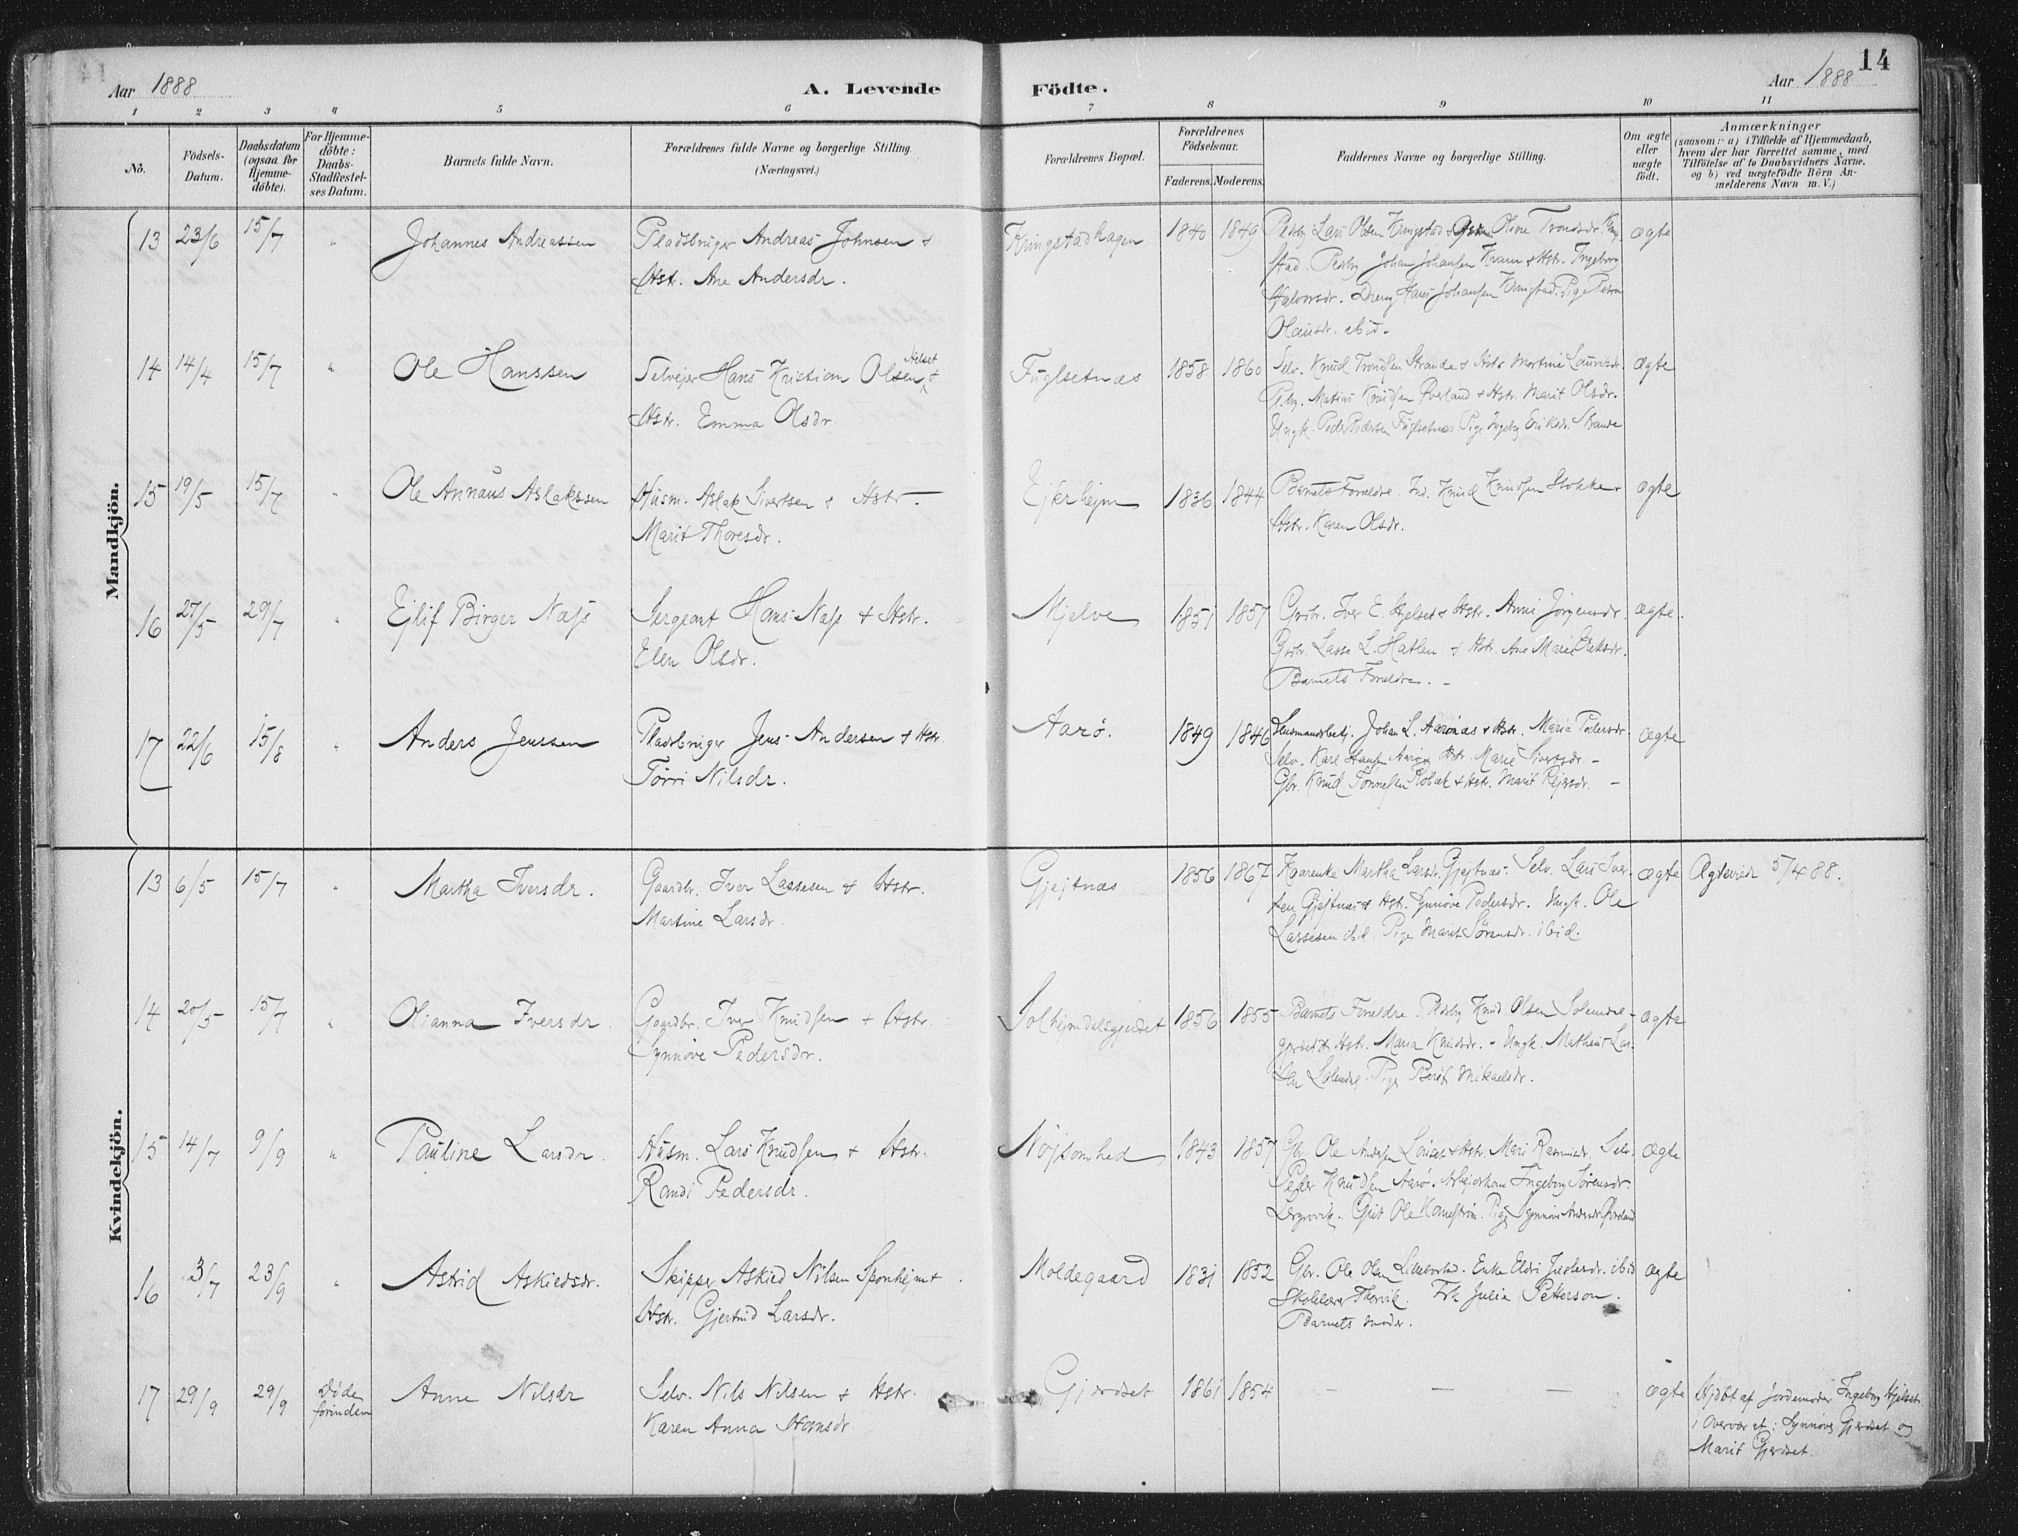 Aar 1888
A. Levende
Födte.
Aar 1888
14
1 2 3 4 5 6 7 8 9 10 11
No.
Födsels-
Datum.
Daabsdatum
(ogsaa for
Hjemme-
döbte).
For Hjemme-
döbte:
Daabs-
Stadfæstel-
ses Datum.
Barnets fulde Navn.
Forældrenes fulde Navne og borgerlige Stilling
(Næringsvei.)
Forældrenes Bopæl.
Forældrenes
Födselsaar.
Faderens. Moderens.
Faddernes Navne og borgerlige Stilling.
Om ægte
eller
uægte
födt.
Anmærkninger
(saasom: a) i Tilfælde af Hjemmedaab,
hvem der har forrettet samme, med
Tilföielse af to Daabsvidners Navne.
og b) ved uægtefödte Börn An-
melderens Navn m. V.)
Mandkjön.
13 23/6 15/7 " Johannes Andreassen
Pladsbruger Andreas Johnsen +
Hstr. Ane Andersdr.
Kringstadhagen 1840 1849
Pladsby Lars Olsen Kringstad Oline Trondsdr. Kring
stad. Johan Johansen Kvam + Hstr. Ingeborg
Halvorsdr. Dreng Hans Johansen Kringstad. Pige
Olausdr. ibid.
ægte
14 14/4 15/7 " Ole Hanssen
Selvejer Hans Kristian Olsen Helset +
Hstr. Emma Olsdr.
Fuglsetnæs 1858 1860
Selv. Knud Trondsen Strande + Hstr Martine Lauritsdr.
Matias Knudsen Øverland + Hstr. Marit Olsdr.
Ungk. Peder Pedersen Fuglsetnæs Pige Ingebg Eriksdr. Strande
ægte
15 19/5 15/7 " Ole Annæus Aslakssen
Husm. Aslak Sivertsen + Hstr
Marit Thoresdr.
Ejkrhejm 1836 1844
Barnets Forældre. Ind. Knud Knudsen Stokke +
Hstr. Karen Olsdr.
ægte
16 27/5 29/7 " Ejlif Birger Næss
Sergeant Hans Næss + Hstr.
Elen Olsdr.
Mjelve 1851 1857
Grdbr. Iver E. Hjelset + Hstr. Anne Jørgensdr.
Grdbr. Lasse L. Hatlen + Hstr Ane Marie
Barnets Forældre.
ægte.
17 22/6 15/8 " Anders Jenssen
Pladsbruger Jens Andersen + Hstr
Tørri Nilsdr.
Aarø. 1849 1846
Johan L. Aarønæs + Hstr. Maria Pedersdr.
Selv. Karl Hansen Aarø + Hstr. Marie Sivertsdr.
Gbr. Knud Tønnessen Robæk + Hstr. Marit
ægte
Kvindekjön.
13 6/5 15/7 " Martha Iversdr.
Gaardbr. Iver Lassesen + Hstr.
Martine Larsdr.
Gjejtnæs 1856 1867
Kaarenke Martha Larsdr. Gjejtnæs. Selv. Lars Iver-
sen Gjejtnæs + Hstr. Synnøve Pedersdr. Ungk. Ole
Lassesen ibid. Pige Marit Sørensdr. ibid.
ægte
Ægteviede 5/4 88.
14 20/5 15/7 " Olianna Iversdr.
Gaardbr. Iver Knudsen + Hstr.
Synnøve Pedersdr.
Solhejmdalsgjerdet 1856 1855
Barnets Forældre. Pladsby Knud Olsen Solemdal-
gjerdet + Hstr. Maria Knudsdr. - Ungk. Matheus Lar-
sen Solemdal. Pige Berit Mikaelsdr.
ægte
15 14/7 9/9 " Pauline Larsdr.
Husm. Lars Knudsen + Hstr.
Randi Pedersdr.
Nøjsomhed 1843 1857
Gbr. Ole Andersen + Hstr. Mari Rasmusdr. Selv.
Peder Knudsen Aarø. Arbejderkone Ingeborg Sørensdr.
Ole Pige Synnøve Andersdr.
ægte
16 3/7 23/9 " Astrid Askiedsdr.
Skipper Askied Nilsen Sponhejm +
Hstr. Gjertrud Larsdr.
Moldegaard 1831 1852
Gbr. Ole Olsen Enke Eldri ibid
Skolelærer Thorvik. Frk Julia Peterson.
Barnets moder.
ægte
17 29/9 29/9 Døde
forinden
Anne Nilsdr
Selv. Nils Nilsen + Hstr.
Karen Anna Hansdr.
Gjerdset 1861 1854 — — —
ægte
Hjdøbt af Jordemoder Ingeborg Hjelset
i Overvær af: Synnøve Gjerdset og
Marit Gjerdset.